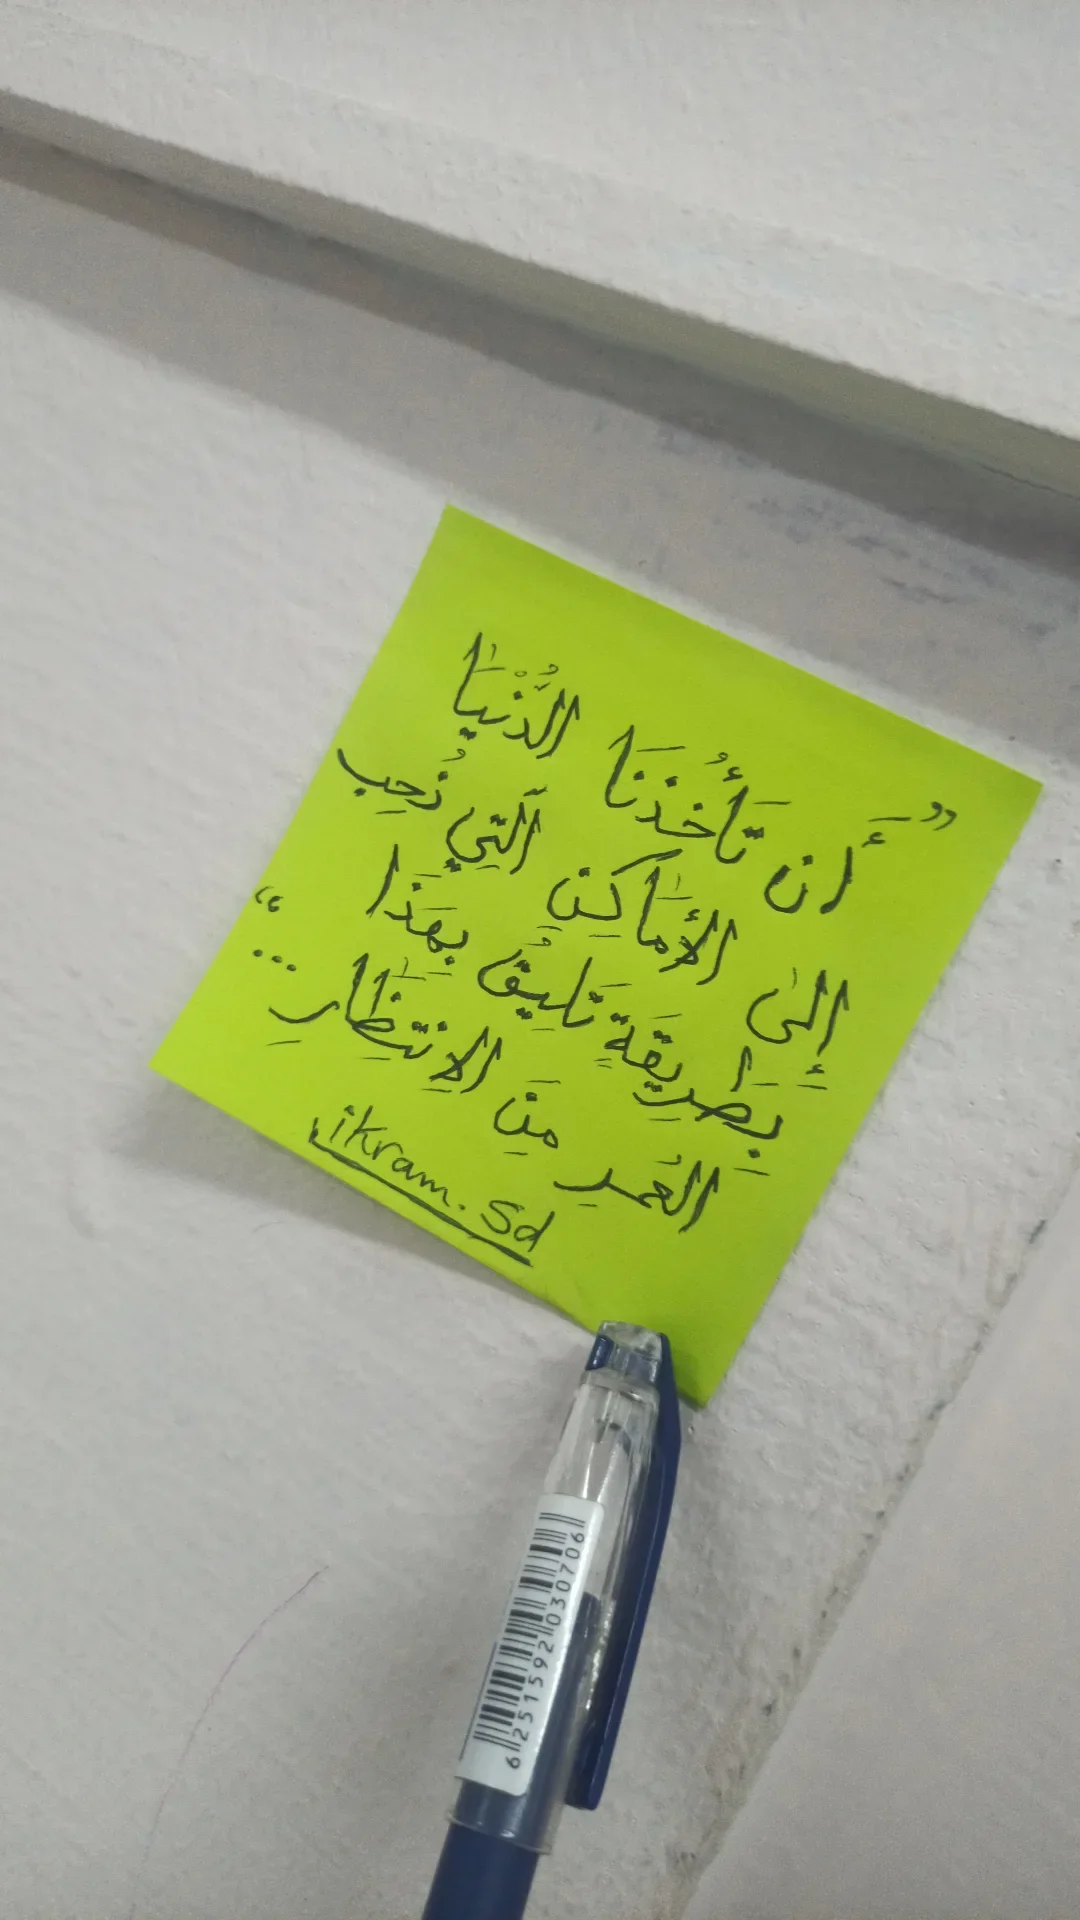 " أَن تَأْخُذَنَا الدُّنْيَا
إِلَىٰ الأَمَاكِنِ الَّتِي نُحِب
بِطَرِيقَةٍ تَلِيقُ بِهَذَا
العُمرِ مِنَ الاِنتِظَارِ ... "
ikram.sd
6 251592 030706